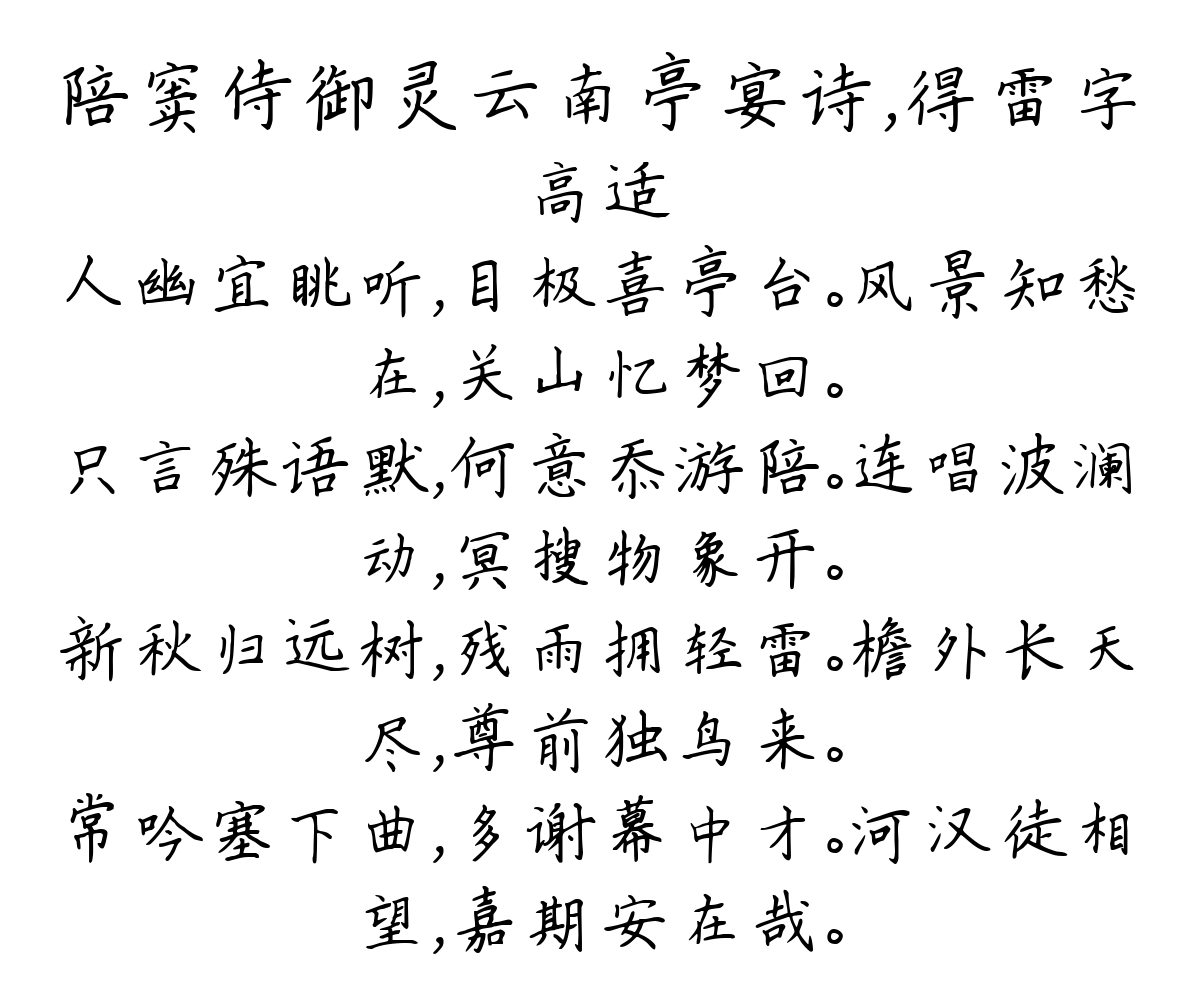 陪窦侍御灵云南亭宴诗,得雷字
高适
人幽宜眺听,目极喜亭台。风景知愁
在,关山忆梦回。
只言殊语默,何意忝游陪。连唱波澜
动,冥搜物象开。
新秋归远树,残雨拥轻雷。檐外长天
尽,尊前独鸟来。
常吟塞下曲,多谢幕中才。河汉徒相
望,嘉期安在哉。